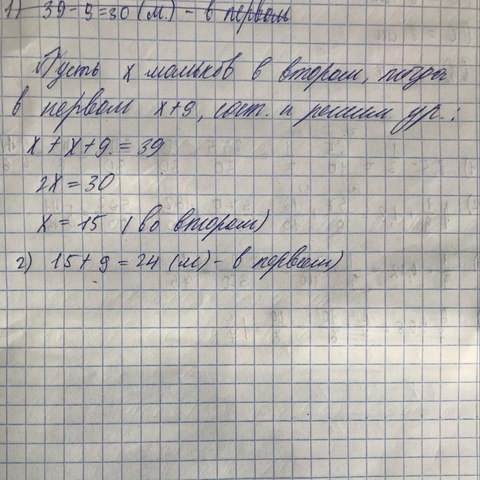 1) 39-9=30 (м.) - в первом
Пусть x мальков в втором, тогда
в первом x+9, сост. и решим ур.:
x + x+9 = 39
2x = 30
x = 15 (во втором)
2) 15+9 = 24 (м) - в первом)